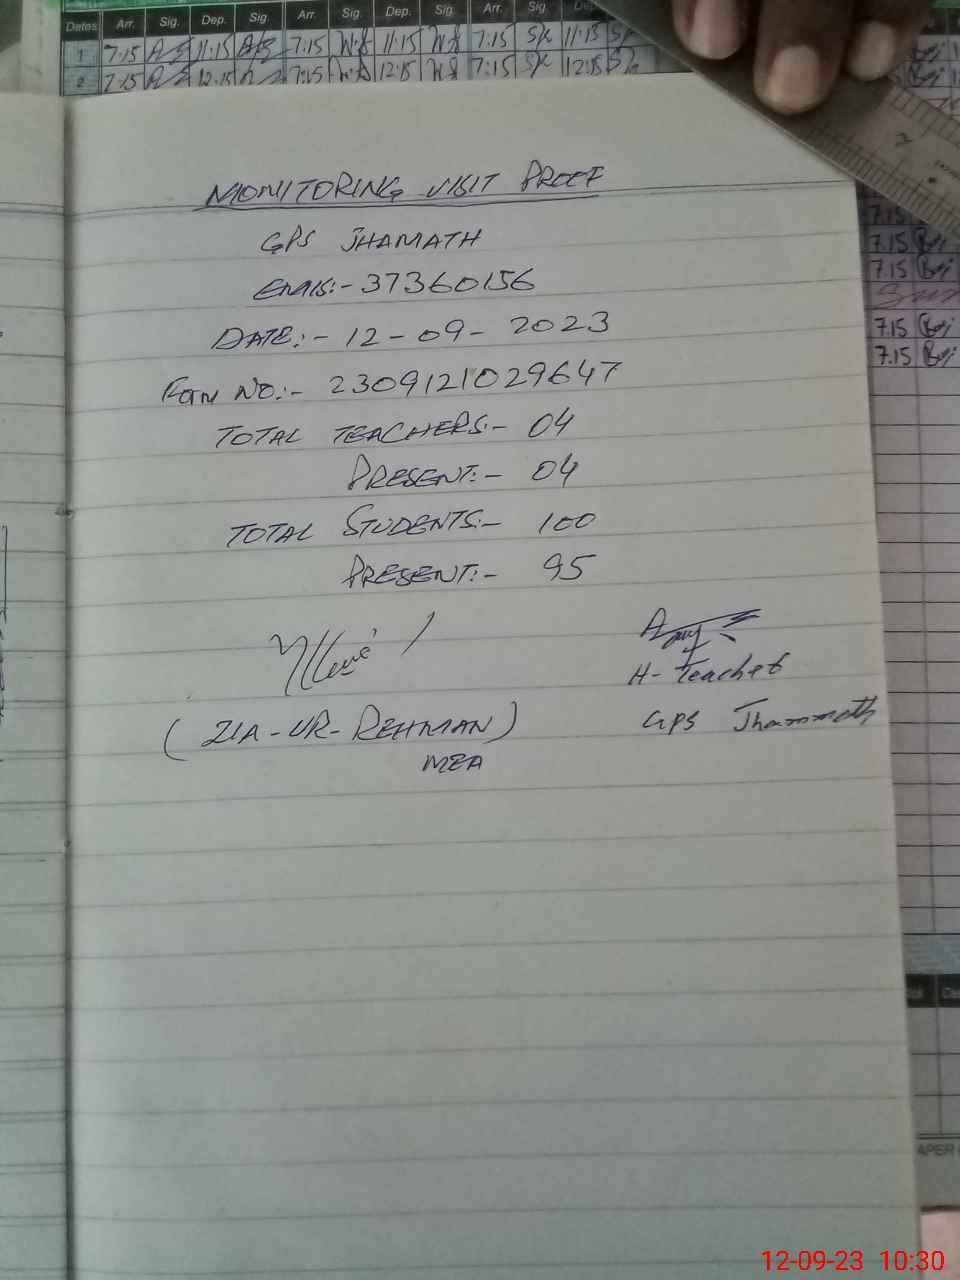 Dates Arr. Sig. Dep. Sig. Arr. Sig. Dep. Sig. Arr. Sig. Dep.
1 7:15 11:15 7:15 11:15 7:15 11:15
2 7:15 12:15 7:15 12:15 7:15 12:15
MONITORING VISIT PROOF
GPS JHAMATH
EMIS:- 37360156
DATE:- 12-09-2023
Form NO:- 2309121029647
TOTAL TEACHERS:- 04
PRESENT:- 04
TOTAL STUDENTS:- 100
PRESENT:- 95
H-Teacher
(ZIA-UR-REHMAN) GPS Jhammath
MEA
7.15
7.15
7.15
7.15
7.15
12-09-23 10:30